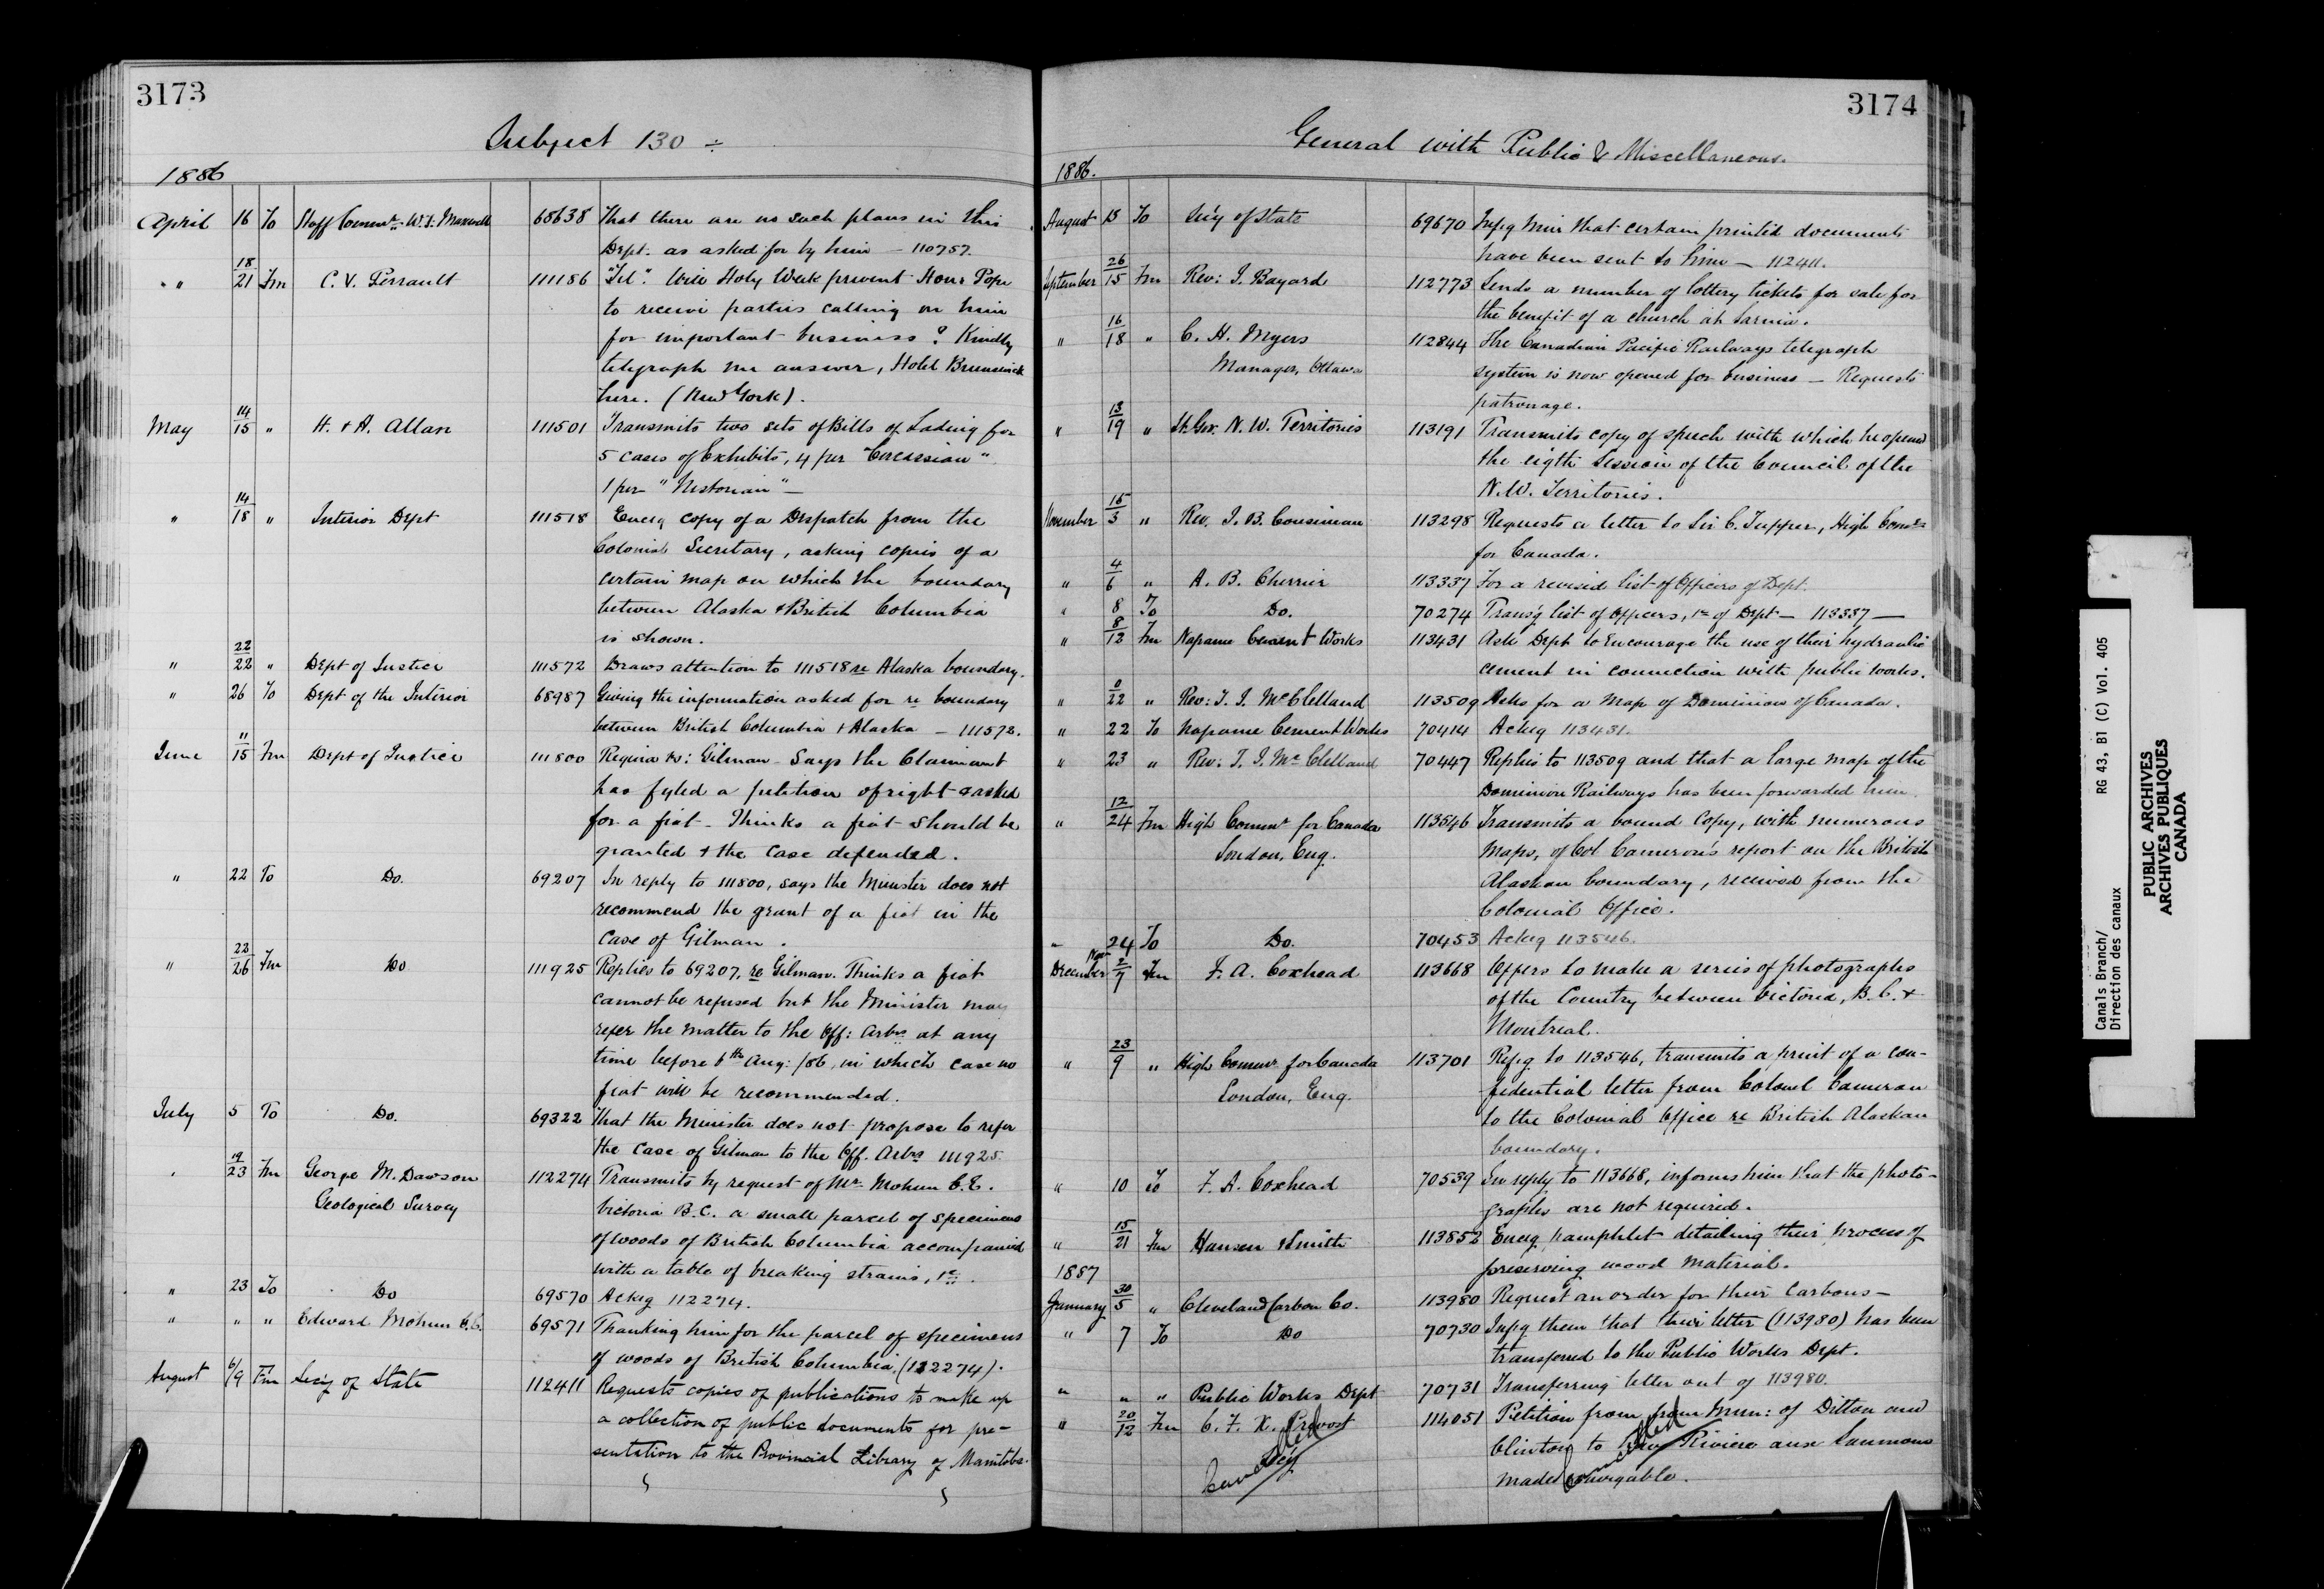 3173
Subject 130 ÷
1886
April 16 To Staff Comm<sup>r</sup> W. F. Maxwell 68638 That there are no such plans in this
Dept. as asked for by him — 110757.
" " 18/21 Fm C. V. Perrault 111186 "Tel". Will Holy Week prevent Hon. Pope
to receive parties calling on him
for important business? Kindly
telegraph me answer, Hotel Brunswick
here. (New York).
May 14/15 " H. & A. Allan 111501 Transmits two sets of Bills of Lading for
5 cases of Exhibits, 4 per "Circassian"
1 per "Nestorian" —
" 14/18 " Interior Dept 111518 Encg copy of a Dispatch from the
Colonial Secretary, asking copies of a
certain map on which the boundary
between Alaska & British Columbia
is shown.
" 22/22 " Dept of Justice 111572 Draws attention to 111518 re Alaska boundary.
" 26 To Dept of the Interior 68987 Giving the information asked for re boundary
between British Columbia & Alaska — 111572.
June 11/15 Fm Dept of Justice 111800 Regina vs: Gilman — Says the Claimant
has fyled a petition of right & asked
for a fiat — Thinks a fiat should be
granted & the case defended.
" 22 To Do. 69207 In reply to 111800, says the Minister does not
recommend the grant of a fiat in the
case of Gilman.
" 22/26 Fm Do 111925 Replies to 69207, re Gilman. Thinks a fiat
cannot be refused but the Minister may
refer the matter to the Off: Arbrs at any
time before 6th Aug: /86, in which case no
fiat will be recommended.
July 5 To Do. 69322 That the Minister does not propose to refer
the case of Gilman to the Off. Arbrs 111925.
" 19/23 Fm George M. Dawson 112274 Transmits by request of Mr. Mohun C.E.
Geological Survey Victoria B.C. a small parcel of specimens
of woods of British Columbia accompanied
with a table of breaking strains, &c.
" 23 To Do 69570 Ackg 112274.
" " " Edward Mohun C.E. 69571 Thanking him for the parcel of specimens
of woods of British Columbia. (112274).
August 6/9 Fm Sec'y of State 112411 Requests copies of publications to make up
a collection of public documents for pre-
sentation to the Provincial Library of Manitoba.
3174
General with Public & Miscellaneous.
1886.
August 15 To Sec'y of State 69670 Infg him that certain printed documents
have been sent to him — 112411.
September 26/15 Fm Rev: J. Bayard 112773 Sends a number of lottery tickets for sale for
the benefit of a church at Sarnia.
" 16/18 " C. H. Myers 112844 The Canadian Pacific Railways telegraph
Manager, Ottawa system is now opened for business — Requests
patronage.
" 13/19 " Lt. Gov. N. W. Territories 113191 Transmits copy of speech with which he opened
the eigth Session of the Council of the
N.W. Territories.
November 15/3 " Rev. J. B. Cousineau 113298 Requests a letter to Sir C. Tupper, High Comr
for Canada.
" 4/6 " A. B. Cherrier 113337 For a revised list of Officers of Dept.
" 8 To Do. 70274 Transg list of Officers, &c of Dept — 113337 —
" 8/12 Fm Napanee Cement Works 113431 Ask Dept to encourage the use of their hydraulic
cement in connection with public works.
" 0/22 " Rev: T. J. McClelland 113509 Asks for a Map of Dominion of Canada.
" 22 To Napanee Cement Works 70414 Ackg 113431.
" 23 " Rev: T. J. McClelland 70447 Replies to 113509 and that a large map of the
Dominion Railways has been forwarded him.
" 12/24 Fm High Commr for Canada 113546 Transmits a bound copy, with numerous
London, Eng. maps, of Col Cameron's report on the British
Alaskan boundary, received from the
Colonial Office.
" 24 To Do. 70453 Ackg 113546.
Nov
December 2/7 Fm F. A. Coxhead 113668 Offers to make a series of photographs
of the Country between Victoria, B.C. &
Montreal.
" 23/9 " High Commr for Canada 113701 Refg to 113546, transmits a print of a con-
London, Eng. fidential letter from Colonel Cameron
to the Colonial Office re British Alaskan
boundary.
" 10 To F. A. Coxhead 70539 In reply to 113668, informs him that the photo-
graphs are not required.
" 15/21 Fm Hansen & Smith 113852 Encg pamphlet detailing their process of
preserving wood material.
1887
January 30/5 " Cleveland Carbon Co. 113980 Request an order for their Carbons —
" 7 To Do 70730 Infg them that their letter (113980) has been
transferred to the Public Works Dept.
" " " Public Works Dept 70731 Transferring letter out of 113980.
" 20/12 Fm C. F. X. Provost 114051 Petition from from Mun: of Ditton and
Sec'y Clinton to have Riviere aux Saumons
made navigable.
Cancelled
Cancelled
Canals Branch/ RG 43, B1 (C) Vol. 405
Direction des canaux
PUBLIC ARCHIVES
ARCHIVES PUBLIQUES
CANADA